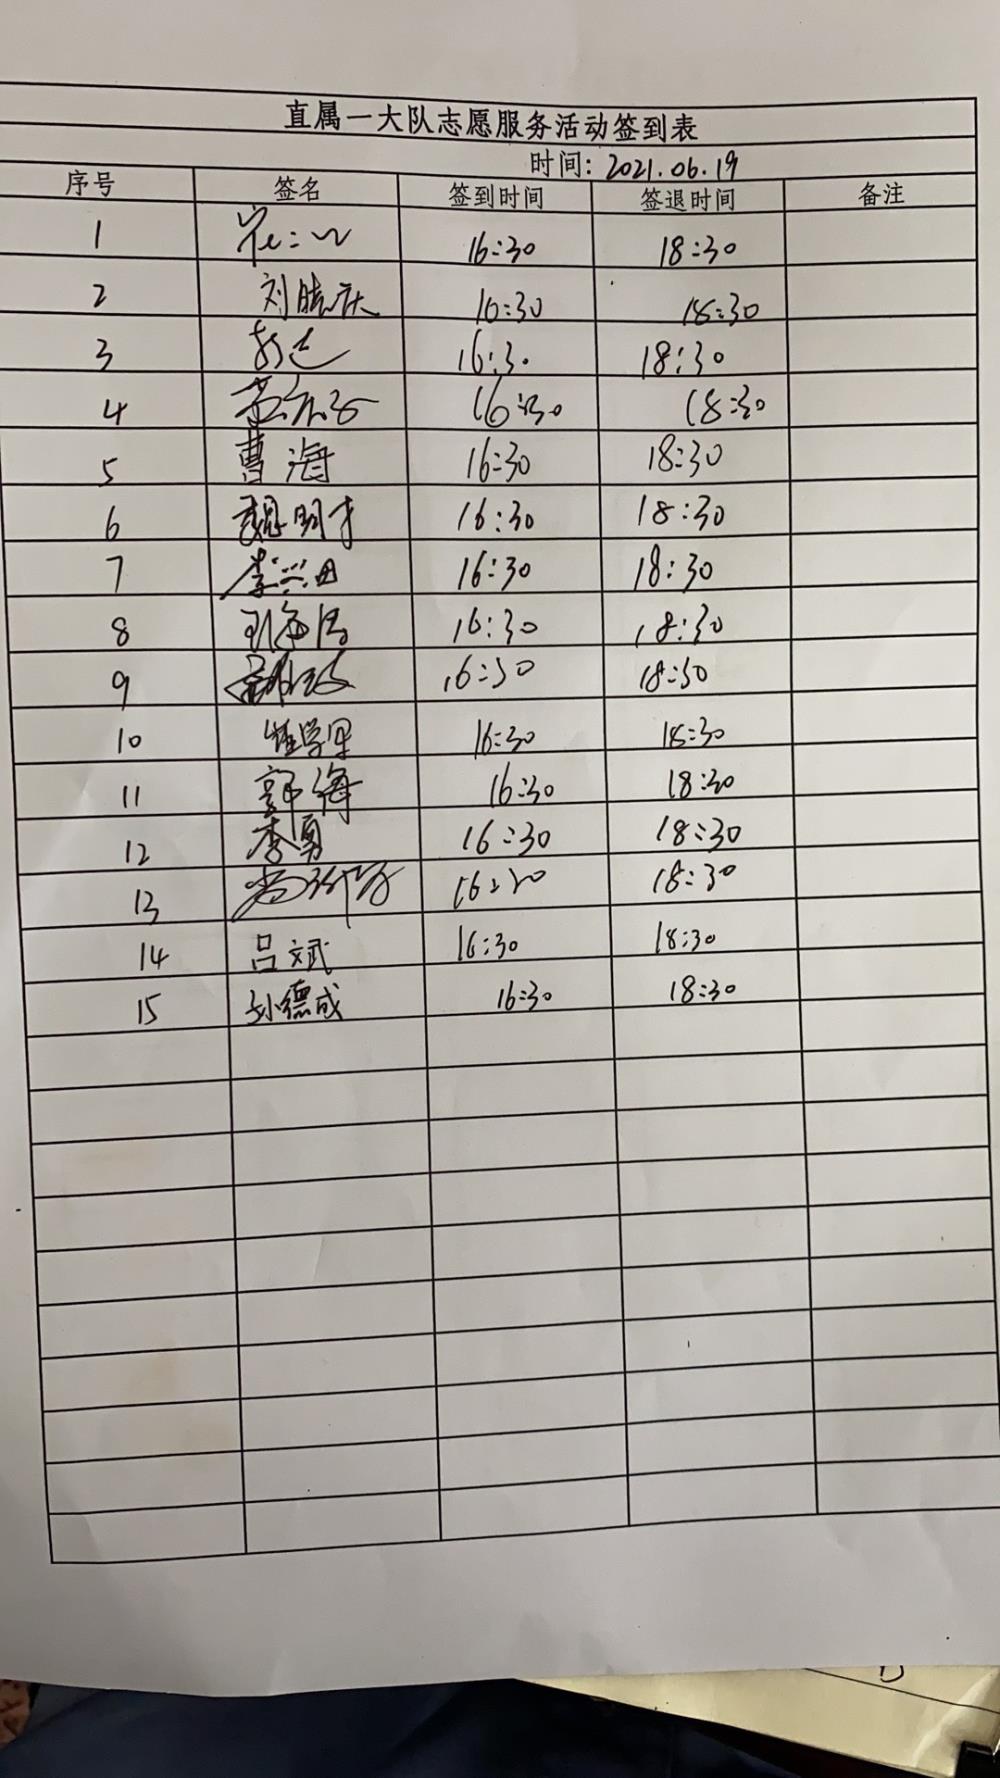 直属一大队志愿服务活动签到表
时间: 2021.06.19
序号 签名 签到时间 签退时间 备注
1 16:30 18:30
2 刘 16:30 18:30
3 16:30 18:30
4 16:30 18:30
5 曹海 16:30 18:30
6 魏明才 16:30 18:30
7 李兴田 16:30 18:30
8 16:30 18:30
9 16:30 18:30
10 16:30 18:30
11 郭海 16:30 18:30
12 李勇 16:30 18:30
13 18:30
14 吕斌 16:30 18:30
15 孙德成 16:30 18:30